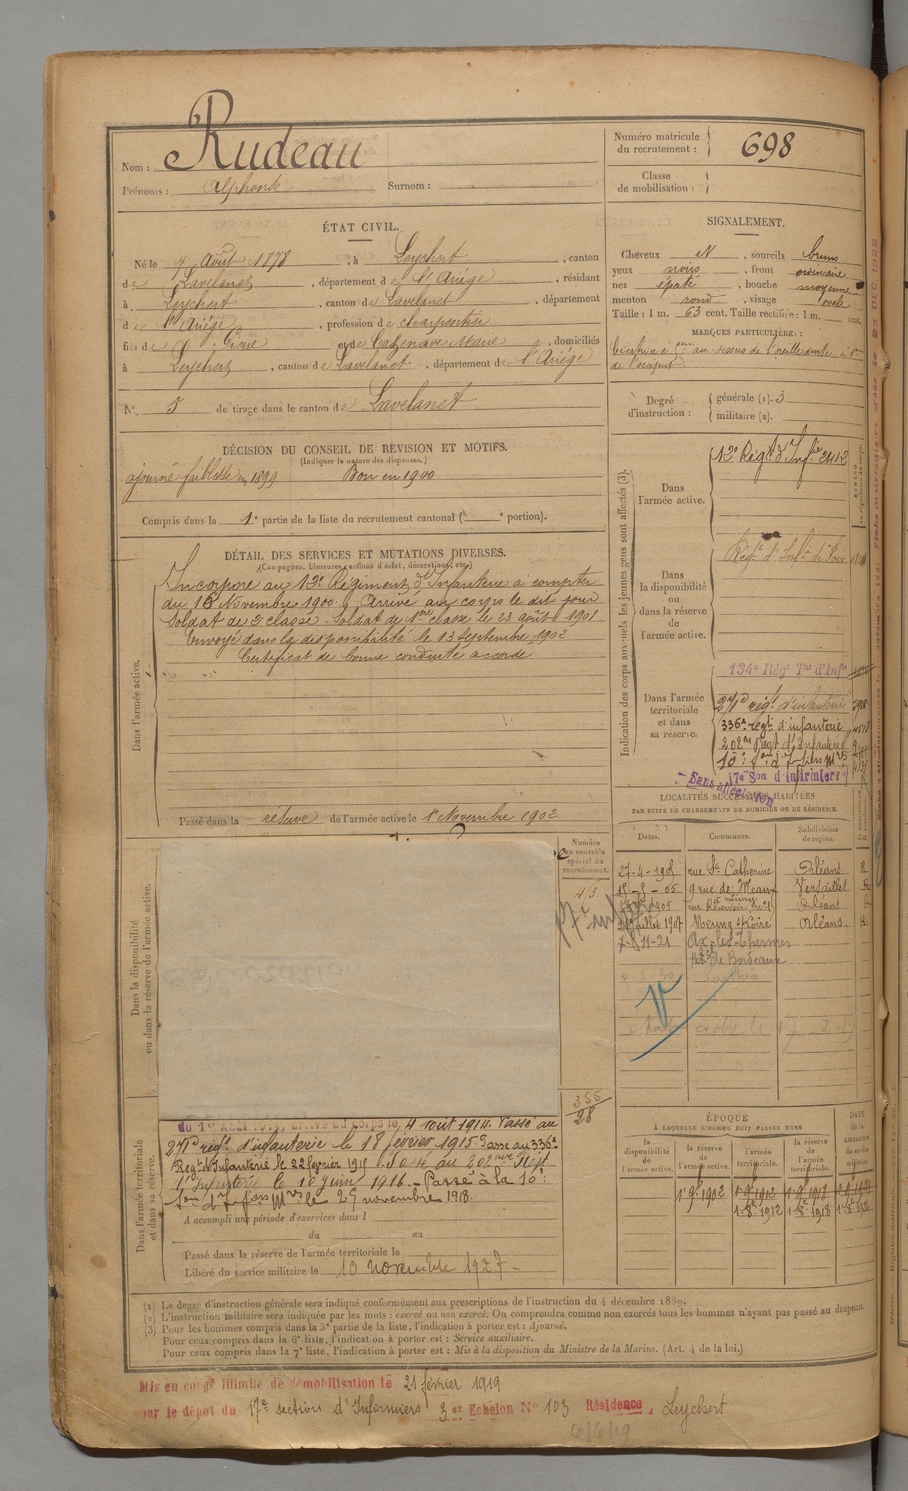 Nom : Rudeau
Prénoms : Alphonse Surnom :
Numéro matricule du recrutement : 698
Classe de mobilisation :
ÉTAT CIVIL.
Né le 7 Août 1878, à Leychert, canton
de Lavelanet, département de l'Ariége, résidant
à Leychert, canton de Lavelanet, département
de l'Ariége, profession de charpentier
fils de et de Cazenave Marie, domiciliés
à Leychert, canton de Lavelanet, département de l'Ariége
N° 5 de tirage dans le canton de Lavelanet
SIGNALEMENT.
Cheveux N, sourcils bruns
yeux noirs, front ordinaire
nez épaté, bouche moyenne
menton rond, visage ovale
Taille : 1 m. 63 cent. Taille rectifiée : 1 m. cent.
MARQUES PARTICULIÈRES :
au dessus de l'oreille droite
de l'occiput
Degré d'instruction : générale (1). 3
militaire (2).
DÉCISION DU CONSEIL DE RÉVISION ET MOTIFS.
(Indiquer la nature des dispenses.)
ajourné faiblesse en 1899 Bon en 1900
Compris dans la 1e partie de la liste du recrutement cantonal ( e portion).
DÉTAIL DES SERVICES ET MUTATIONS DIVERSES.
(Campagnes, blessures, actions d'éclat, décorations, etc.)
Dans l'armée active.
Incorporé au 12e Régiment d'Infanterie à compter
du 16 Novembre 1900. Arrivé au corps le dit jour
Soldat de 2e classe. Soldat de 1ère classe le 23 août 1901
Envoyé dans la disponibilité le 13 Septembre 1902
Certificat de bonne conduite accordé
Passé dans la réserve de l'armée active le 1 Novembre 1902
Indication des corps auxquels les jeunes gens sont affectés (3).
Dans l'armée active.
12e Régt d'Infie 2412
Dans la disponibilité ou dans la réserve de l'armée active.
Régt d'Infie de Foix
Dans l'armée territoriale et dans sa réserve.
134e Régt Tal d'Infie
271e régt d'infanterie
336e régt d'infanterie
202me Régt d'Infanterie
17e Son d'Infirmiers
Sans affectation
LOCALITÉS SUCCESSIVES HABITÉES
PAR SUITE DE CHANGEMENTS DE DOMICILE OU DE RÉSIDENCE.
Dates. Communes. Subdivisions de région.
27-4-1905 rue Ste Catherine Orléans R
9 rue de Meaux Versailles
1905 Orléans
juillet 1907 Meung s/Loire Orléans. R
11-21 Ax-les-Thermes
Hel de Bordeaux
Numéro au contrôle spécial du recrutement.
355
28
Dans la disponibilité ou dans la réserve de l'armée active.
Dans l'armée territoriale et dans sa réserve.
4 août 1914. Passé au
271e régt d'infanterie le 18 février 1915 Passé au 336e
Régt d'Infanterie le 22 février 1915 au 202me Régt
d'Infanterie le 10 juin 1916. – Passé à la 10e
novembre 1918.
A accompli une période d'exercices dans l
du au
Passé dans la réserve de l'armée territoriale le
Libéré du service militaire le 10 novembre 1927-
ÉPOQUE
À LAQUELLE L'HOMME DOIT PASSER DANS
la disponibilité de l'armée active. la réserve de l'armée active. l'armée territoriale. la réserve de l'armée territoriale. DATE de la LIBÉRATION du service militaire.
1 9e 1902 1 9e 1912 1 9e 1918
1-8e 1912 1-8e 1918
(1) Le degré d'instruction générale sera indiqué conformément aux prescriptions de l'instruction du 4 décembre 1889.
(2) L'instruction militaire sera indiquée par les mots : exercé ou non exercé. On comprendra comme non exercés tous les hommes n'ayant pas passé au drapeau.
(3) Pour les hommes compris dans la 5e partie de la liste, l'indication à porter est : Ajourné.
Pour ceux compris dans la 6e liste, l'indication à porter est : Service auxiliaire.
Pour ceux compris dans la 7e liste, l'indication à porter est : Mis à la disposition du Ministre de la Marine. (Art. 4 de la loi.)
Mis en congé illimité de démobilisation le 21 février 1919
par le dépôt du 17e section d'Infirmiers 3 er Echelon N° 103 Résidence. Leychert
6/6/19